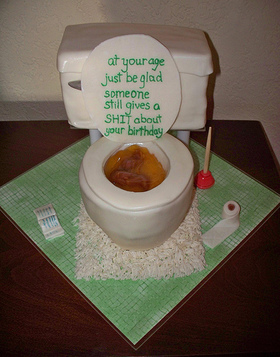 at your age
just be glad
someone
still gives a
SHIT about
your birthday